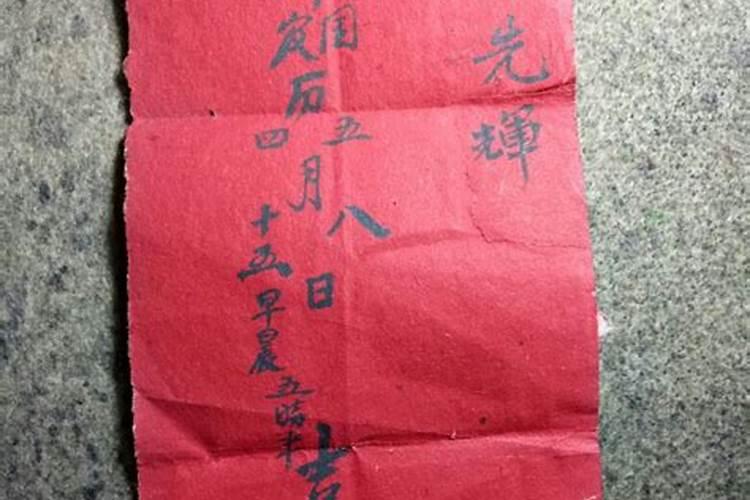 先輝
国 五 八
历月日吉
农 四 十五早晨五時半